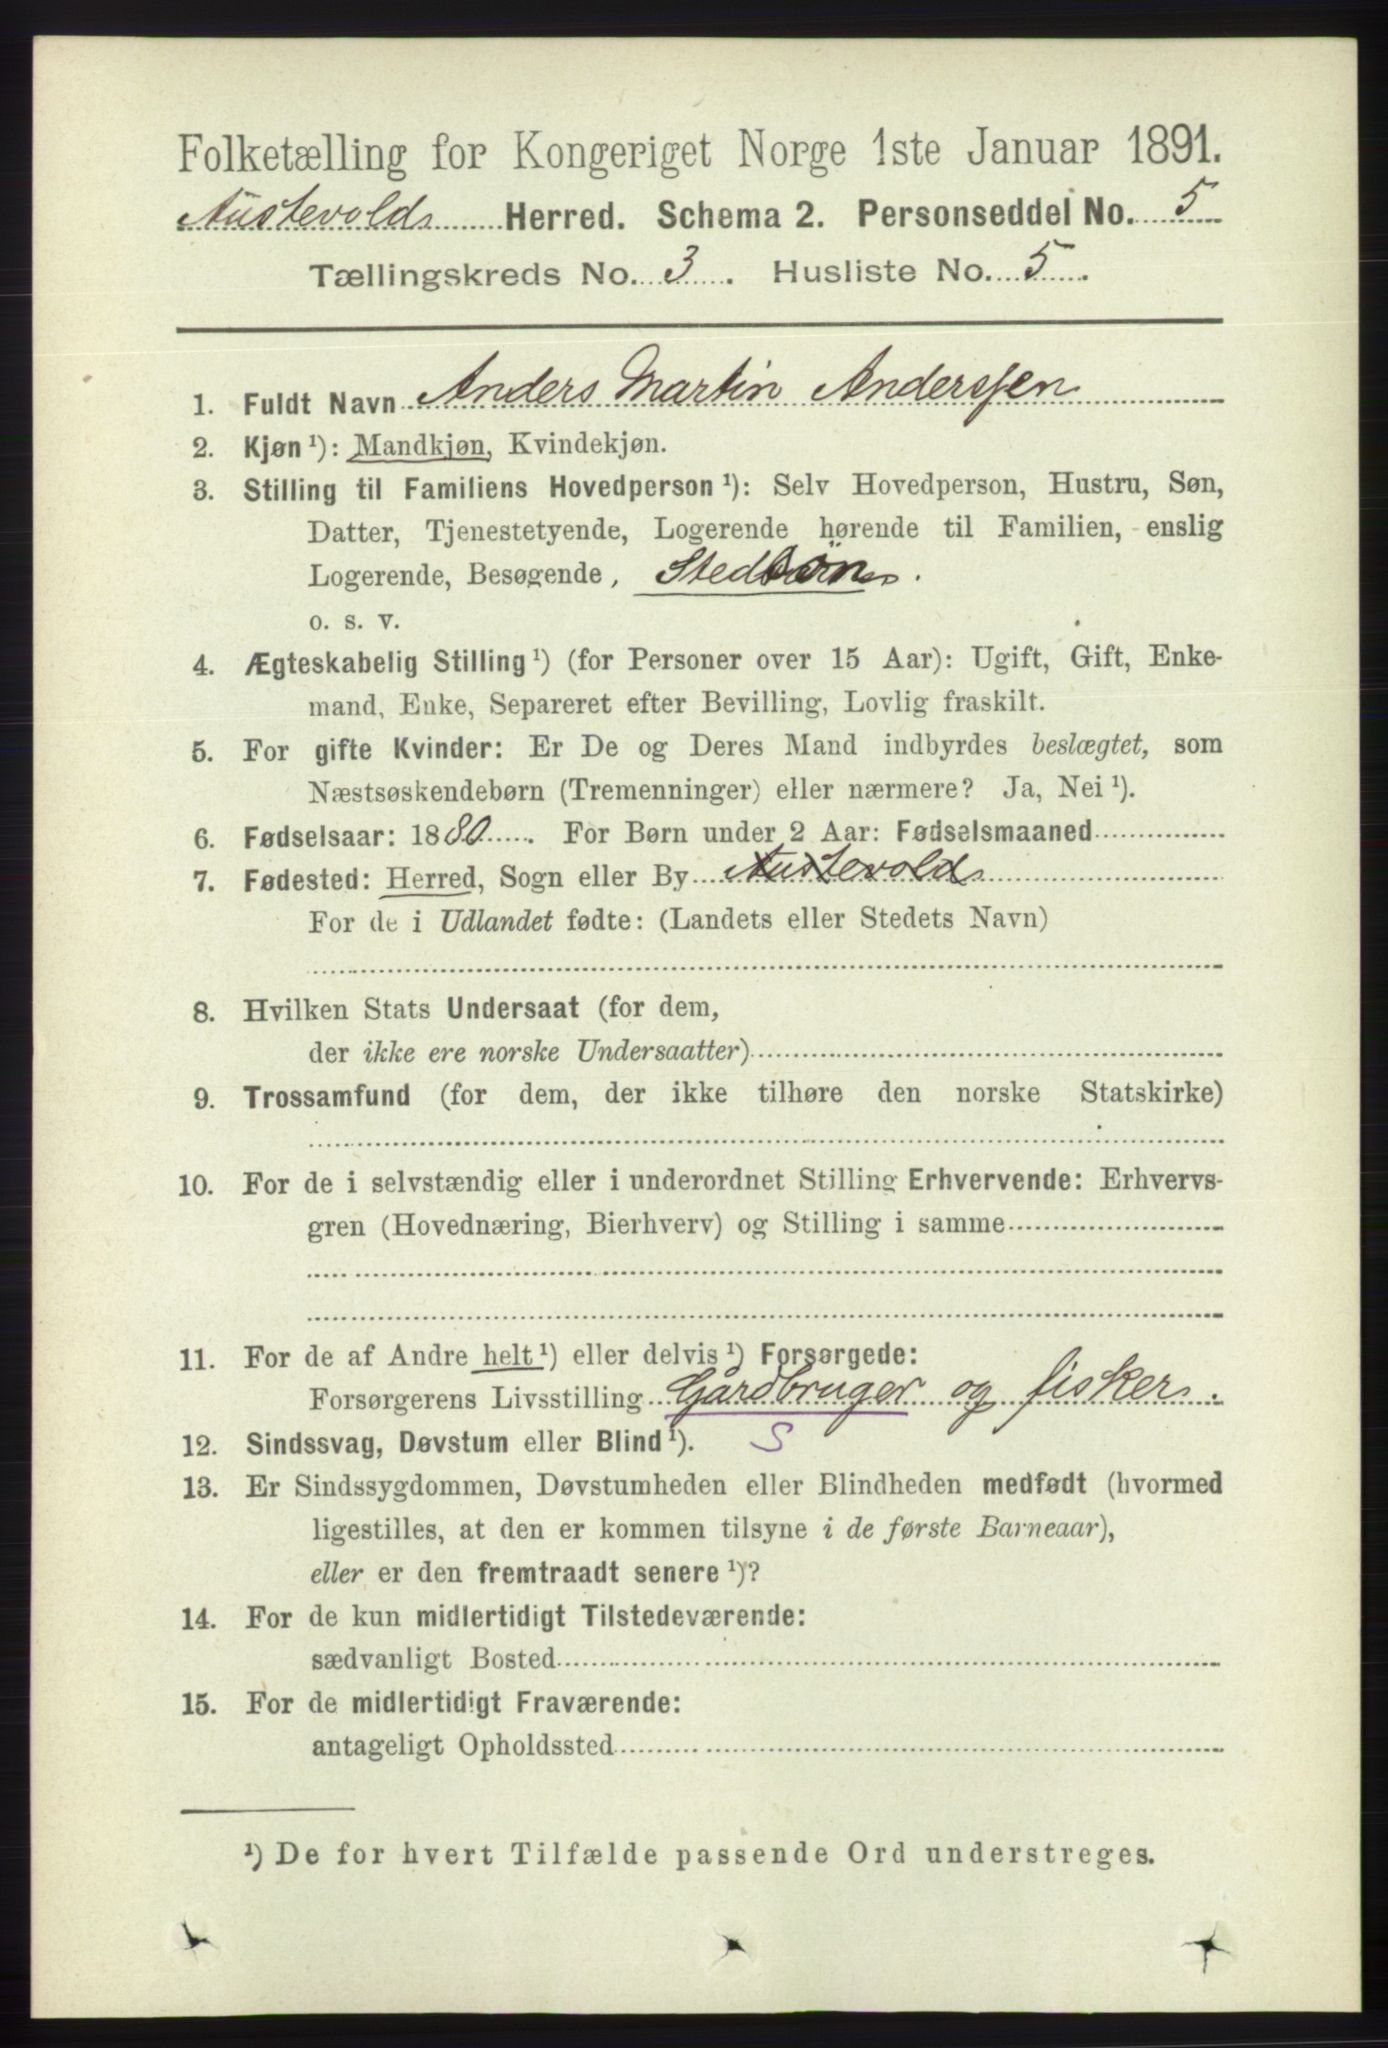 Folketælling for Kongeriget Norge 1ste Januar 1891.
Austevolds Herred. Schema 2. Personseddel No. 5
Tællingskreds No. 3. Husliste No. 5.
1. Fuldt Navn Anders Martin Anderssen
2. Kjøn ¹): Mandkjøn, Kvindekjøn.
3. Stilling til Familiens Hovedperson ¹): Selv Hovedperson, Hustru, Søn,
Datter, Tjenestetyende, Logerende hørende til Familien, enslig
Logerende, Besøgende,
o. s. v.
4. Ægteskabelig Stilling ¹) (for Personer over 15 Aar): Ugift, Gift, Enke-
mand, Enke, Separeret efter Bevilling, Lovlig fraskilt.
5. For gifte Kvinder: Er De og Deres Mand indbyrdes beslægtet, som
Næstsøskendebørn (Tremenninger) eller nærmere? Ja, Nei ¹).
6. Fødselsaar: 1880. For Børn under 2 Aar: Fødselsmaaned
7. Fødested: Herred, Sogn eller By Austevolds
For de i Udlandet fødte: (Landets eller Stedets Navn)
8. Hvilken Stats Undersaat (for dem,
der ikke ere norske Undersaatter)
9. Trossamfund (for dem, der ikke tilhøre den norske Statskirke)
10. For de i selvstændig eller i underordnet Stilling Erhvervende: Erhvervs-
gren (Hovednæring, Bierhverv) og Stilling i samme
11. For de af Andre helt ¹) eller delvis ¹) Forsørgede:
Forsørgerens Livsstilling Gårdbruger og fisker.
12. Sindssvag, Døvstum eller Blind ¹). S
13. Er Sindssygdommen, Døvstumheden eller Blindheden medfødt (hvormed
ligestilles, at den er kommen tilsyne i de første Barneaar),
eller er den fremtraadt senere ¹)?
14. For de kun midlertidigt Tilstedeværende:
sædvanligt Bosted
15. For de midlertidigt Fraværende:
antageligt Opholdssted
¹) De for hvert Tilfælde passende Ord understreges.